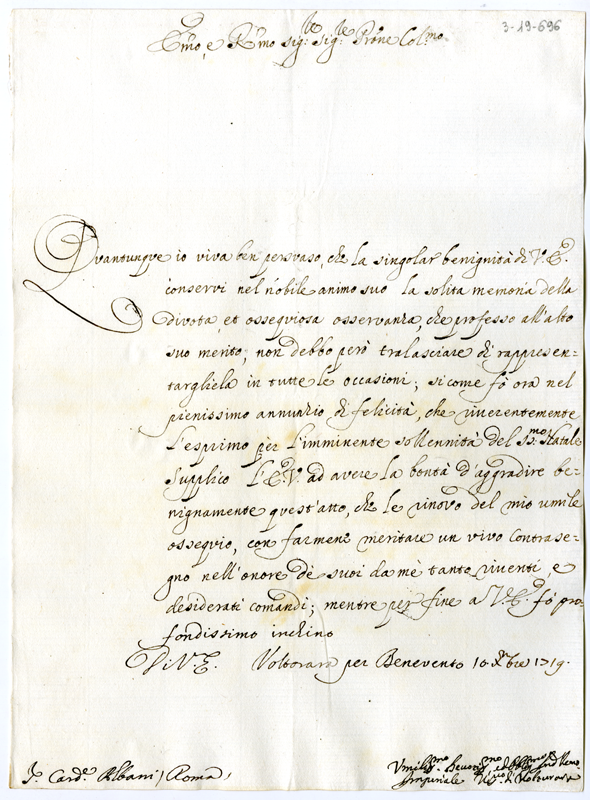 3-19-696
Emo, e Rmo Sigre Sigre Prone Colmo
Quantunque io viva ben persuaso, che la singolar benignità di V. Ea
conservi nel nobile animo suo la solita memoria della
divota, et ossequiosa osservanza, che professo all'alto
suo merito; non debbo però tralasciare di rappresen=
targliela in tutte le occasioni; si come fò ora nel
pienissimo annunzio di felicità, che riverentemente
l'esprimo per l'imminente sollennità del SSmo Natale
Supplico l'Ea V. ad avere la bontà d'aggradire be=
nignamente quest'atto, che le rinovo del mio umile
ossequio, con farmene meritare un vivo contrase=
gno nell'onore de suoi da mè tanto riveriti, e
desiderati comandi; mentre per fine a V. Ea fò pro=
fondissimo inchino
Di V. E. Volturara per Benevento 10 Xbre 1719.
Sr Carde Albani / Roma /
Umilmo Devotmo ed Obbmo
Imperiale Vesco di Volturara